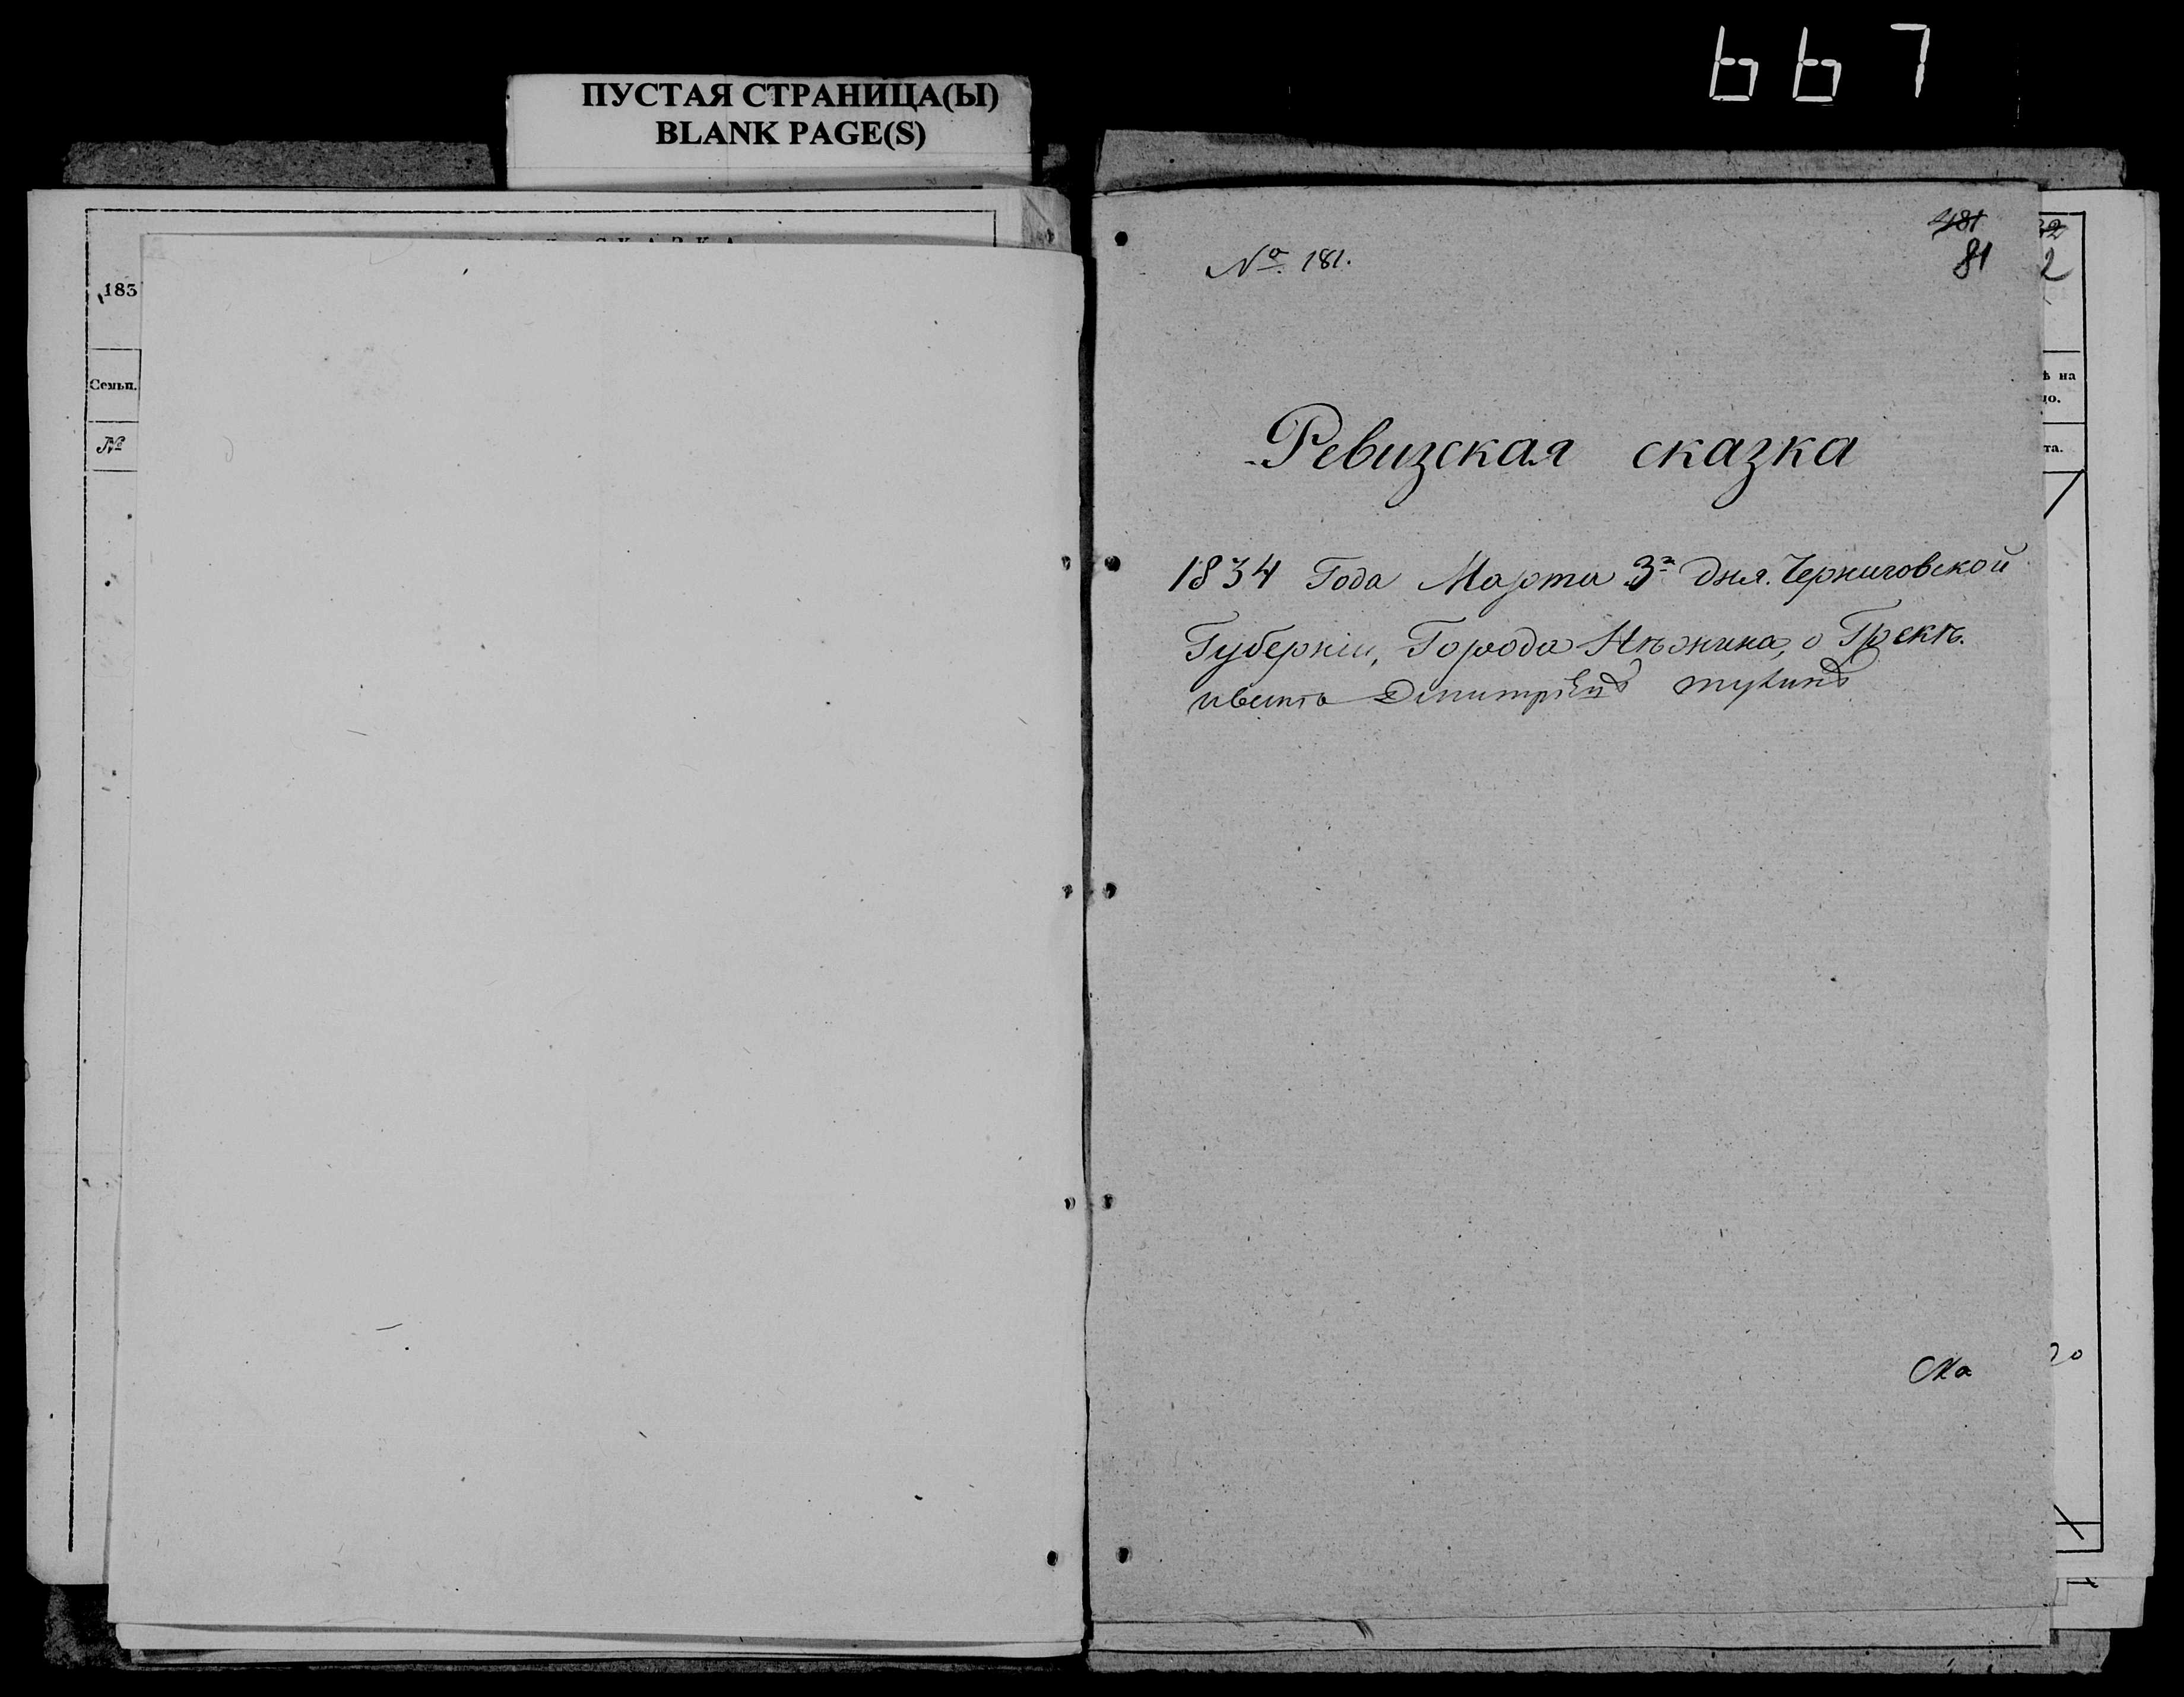 667
ПУСТАЯ СТРАНИЦА(Ы)
BLANK PAGE(S)
183
Семьи.
№
481
81
№ 181.
Ревизская сказка
1834 Года Марта 3го дня. Черниговской
Губернiи, Города Нѣжина, о Грекѣ.
ѣ на
цо.
та.
2
Ма